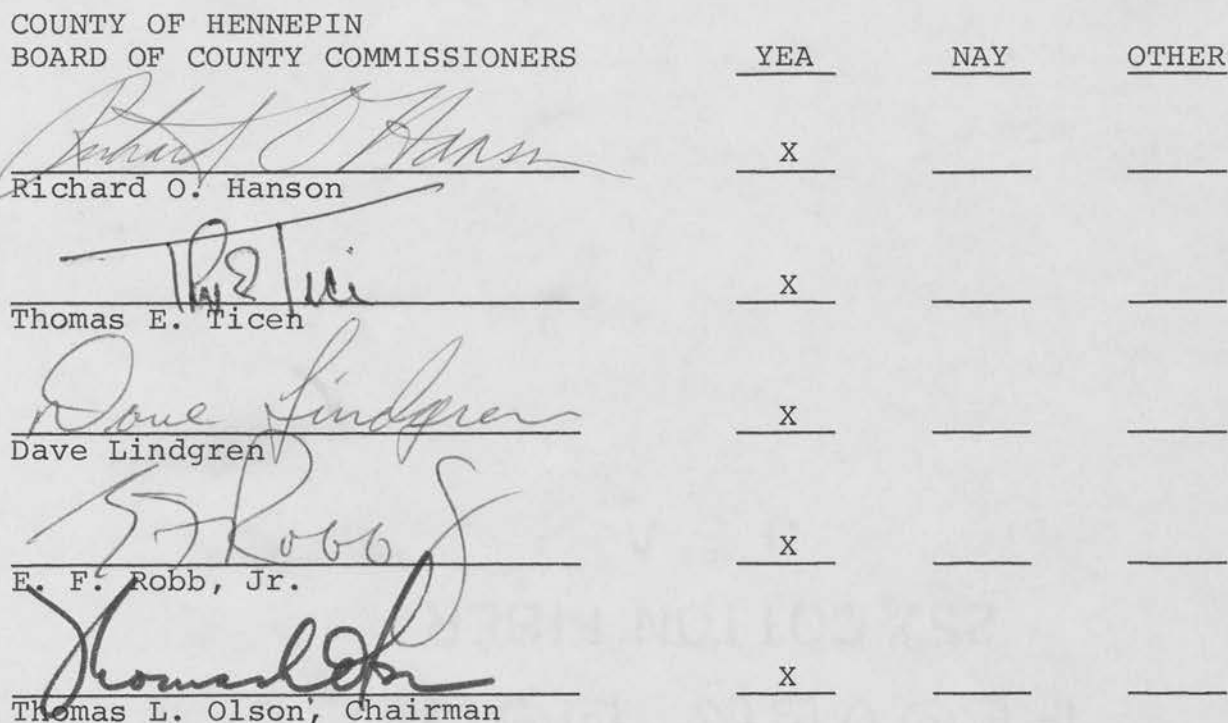 COUNTY OF HENNEPIN
BOARD OF COUNTY COMMISSIONERS YEA NAY OTHER
Richard O Hanson X
Richard O. Hanson
Tho E Ticen X
Thomas E. Ticen
Dave Lindgren X
Dave Lindgren
E F Robb Jr X
E. F. Robb, Jr.
Thomas L Olson X
Thomas L. Olson, Chairman